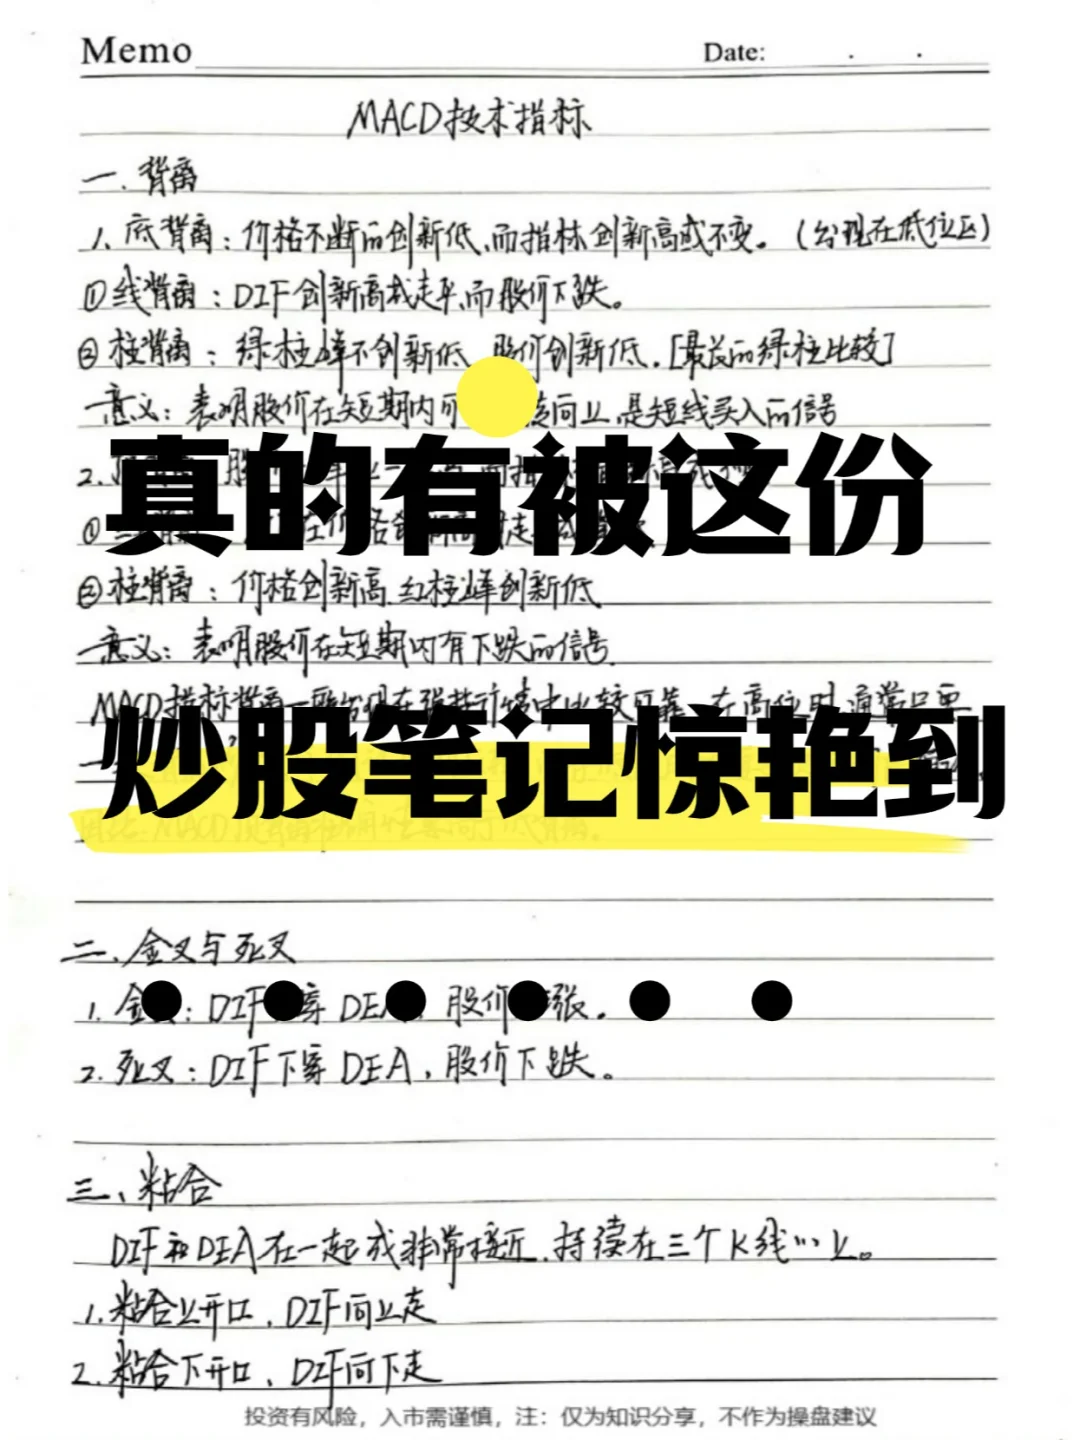 Memo Date:
MACD技术指标
一、背离
1、底背离：价格不断的创新低、而指标创新高或不变。（出现在低位区）
①线背离：DIF创新高或走平，而股价下跌。
②柱背离：绿柱峰不创新低 股价创新低．[最长的绿柱比较]
意义：表明股价在短期内可 向上，是短线买入的信号
2.
真的有被这份
②柱背离：价格创新高，红柱峰创新低
意义：表明股价在短期内有下跌的信号．
MACD指标背离一般出现在强势行情中比较可靠 在高位时通常只要
炒股笔记惊艳到
二、金叉与死叉
1、金 ：DIF 穿DEA 股价 涨。
2、死叉：DIF下穿DEA，股价下跌。
三、粘合
DIF和DEA在一起或非常接近，持续在三个K线以上。
1、粘合上开口，DIF向上走
2、粘合下开口，DIF向下走
投资有风险，入市需谨慎，注：仅为知识分享，不作为操盘建议